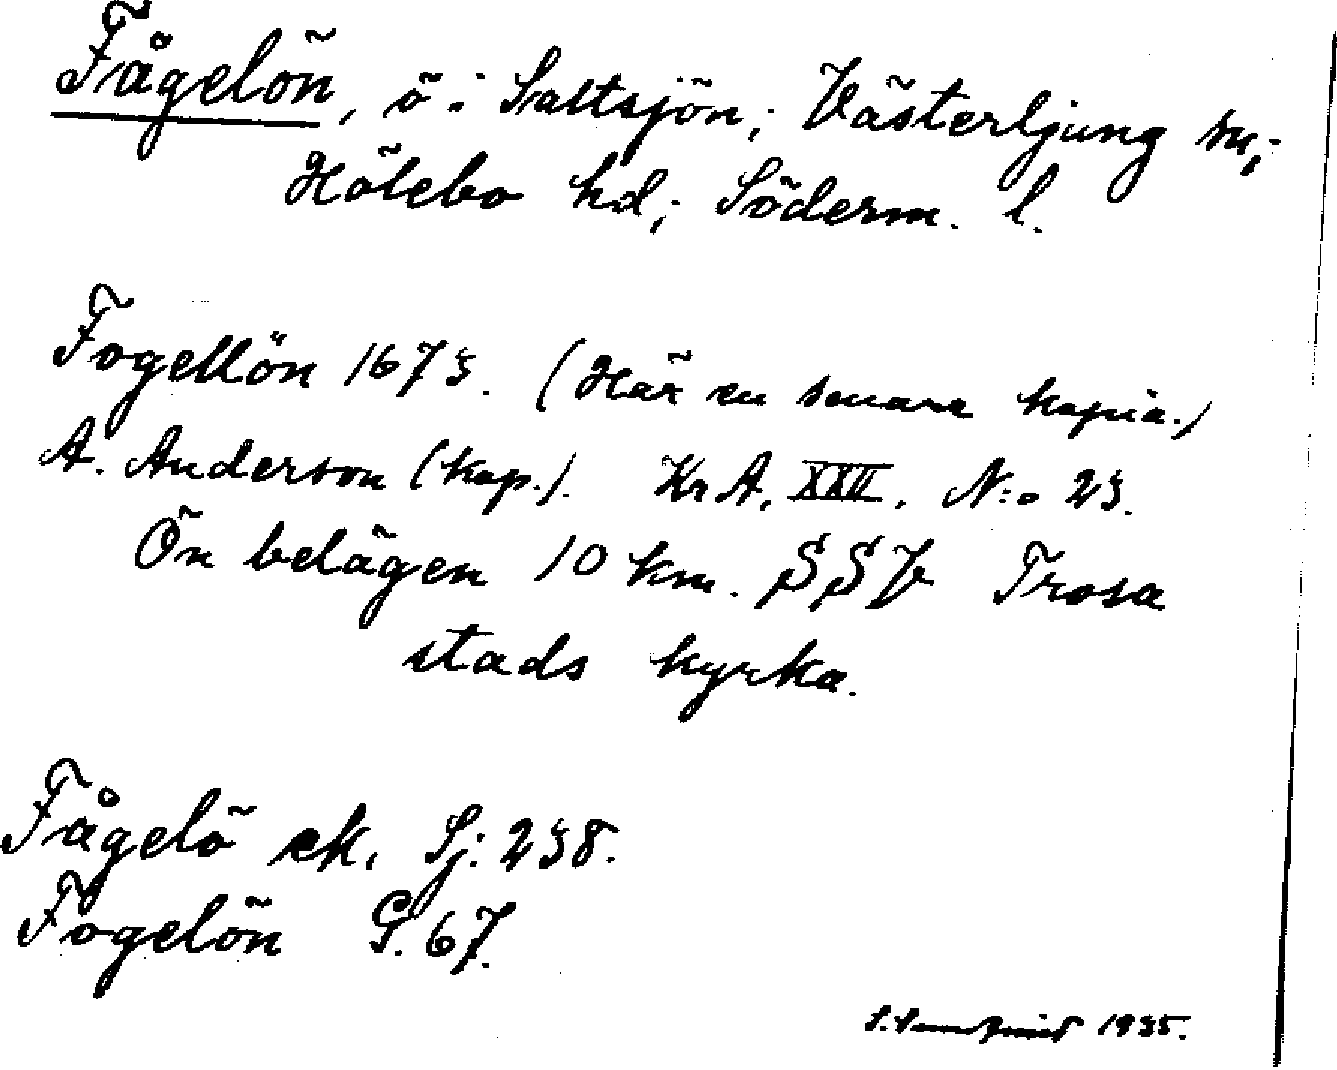 Fågelön, ö i Saltsjön; Västerljung sn;
Hölebo hd; Söderm. l.
Fogellön 1673. (Här en senare kopia.)
A. Anderson (kop.). KrA, XXII, N:o 23.
Ön belägen 10 km. SSV Trosa
stads kyrka.
Fågelö ek. Sj: 238.
Fogelön G. 67.
1935.